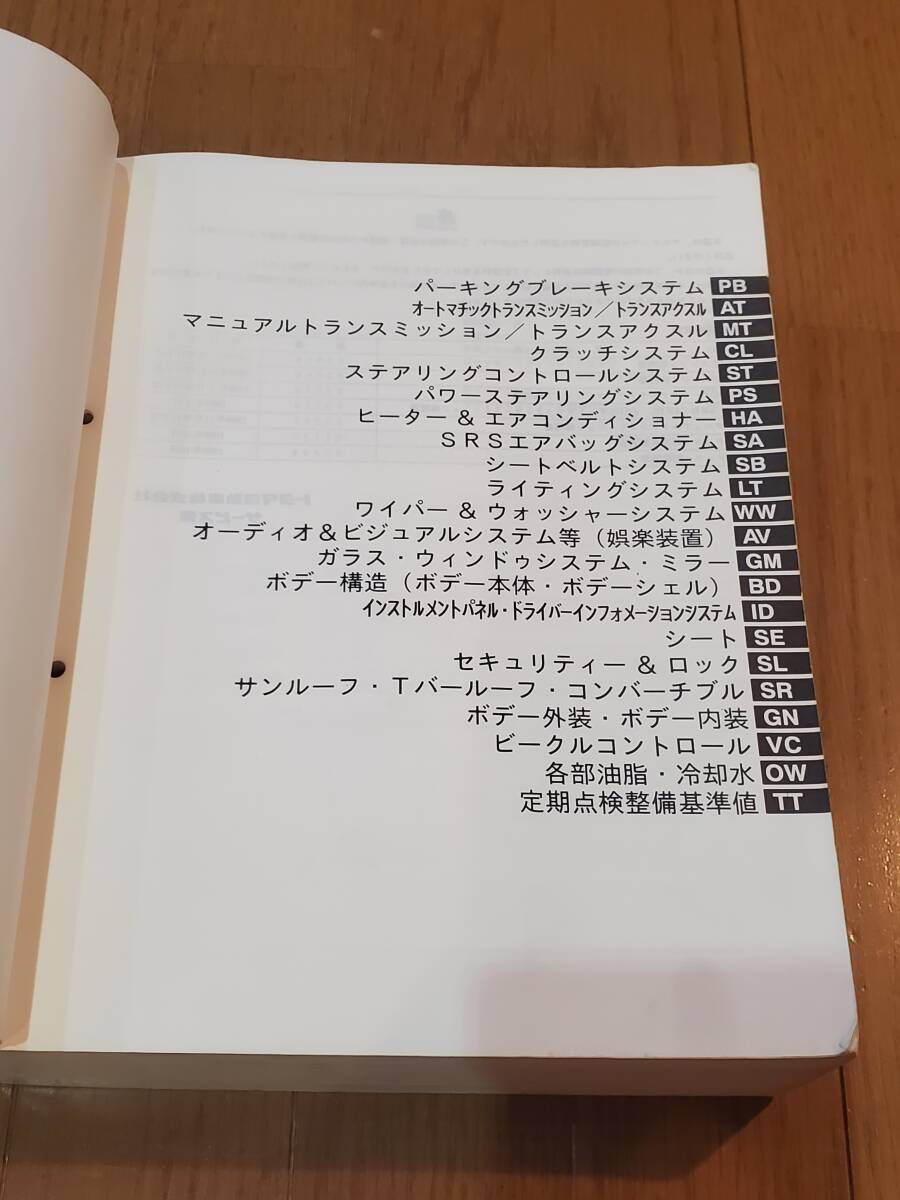 パーキングブレーキシステム PB
オートマチックトランスミッション／トランスアクスル AT
マニュアルトランスミッション／トランスアクスル MT
クラッチシステム CL
ステアリングコントロールシステム ST
パワーステアリングシステム PS
ヒーター & エアコンディショナー HA
SRSエアバッグシステム SA
シートベルトシステム SB
ライティングシステム LT
ワイパー & ウォッシャーシステム WW
オーディオ&ビジュアルシステム等（娯楽装置） AV
ガラス・ウィンドゥシステム・ミラー GM
ボデー構造（ボデー本体・ボデーシェル） BD
インストルメントパネル・ドライバーインフォメーションシステム ID
シート SE
セキュリティー & ロック SL
サンルーフ・Tバールーフ・コンバーチブル SR
ボデー外装・ボデー内装 GN
ビークルコントロール VC
各部油脂・冷却水 OW
定期点検整備基準値 TT